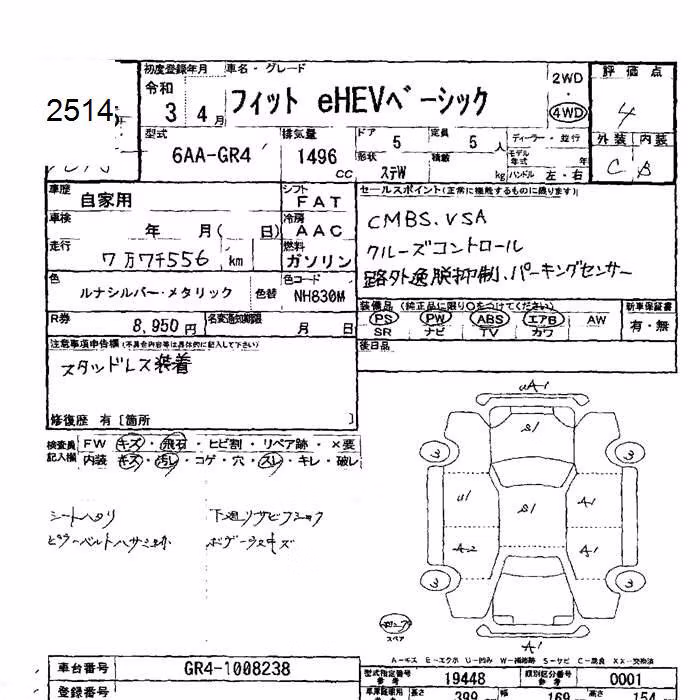 2514
初度登録年月 車名・グレード
令和 3 4月 フィット eHEVベーシック 2WD ・ 4WD
評価点 4
外装 内装
C B
型式 6AA-GR4 排気量 1496 CC
ドア 5 定員 5人 ディーラー・並行
形状 ステW 積載 kg モデル年式 年 ハンドル 左・右
車歴 自家用 シフト FAT
車検 年 月( 日) 冷房 AAC
走行 7万7千556 km 燃料 ガソリン
色 ルナシルバー・メタリック 色替 色コード NH830M
R券 8,950円 名変通知期限 月 日
セールスポイント(正常に機能するものに限ります)
CMBS.VSA
クルーズコントロール
路外逸脱抑制.パーキングセンサー
装備品 (純正品に限り○をつけてください) 新車保証書
PS PW ABS エアB AW 有・無
SR ナビ TV カワ
後日品
注意事項申告欄(不具合内容等は具体的に記入して下さい)
スタッドレス装着
修復歴 有[箇所 ]
検査員記入欄 FW キズ・飛石・ヒビ割・リペア跡・×要
内装 キズ・汚レ・コゲ・穴・スレ・キレ・破レ
シートハタリ 下廻リサビフショク
ボデーウスキズ
uA1
S1
3 3
U1 S1 A1
A2 A1
3 3
スペア
A1
A-キズ E-エクボ U-凹み W-補修跡 S-サビ C-腐食 XX-交換済
車台番号 GR4-1008238
型式指定番号 参考 19448 類別区分番号 参考 0001
登録番号 長さ 399 幅 169 高さ 154